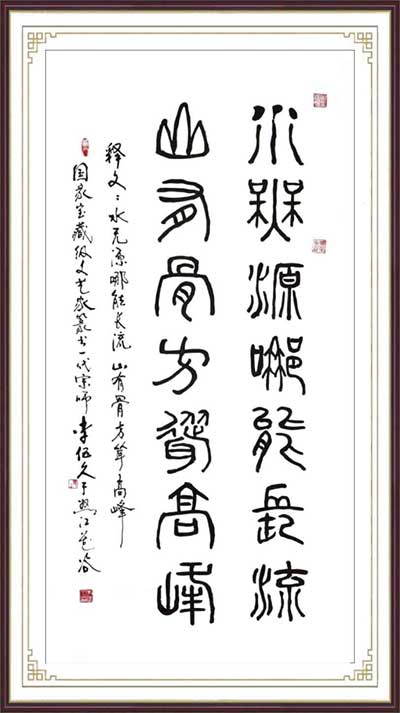 水無源哪能長流
山有骨方聳高峰
释文：水无源哪能长流 山有骨方耸高峰
国家宝藏级文艺家篆书一代宗师 李伍久于